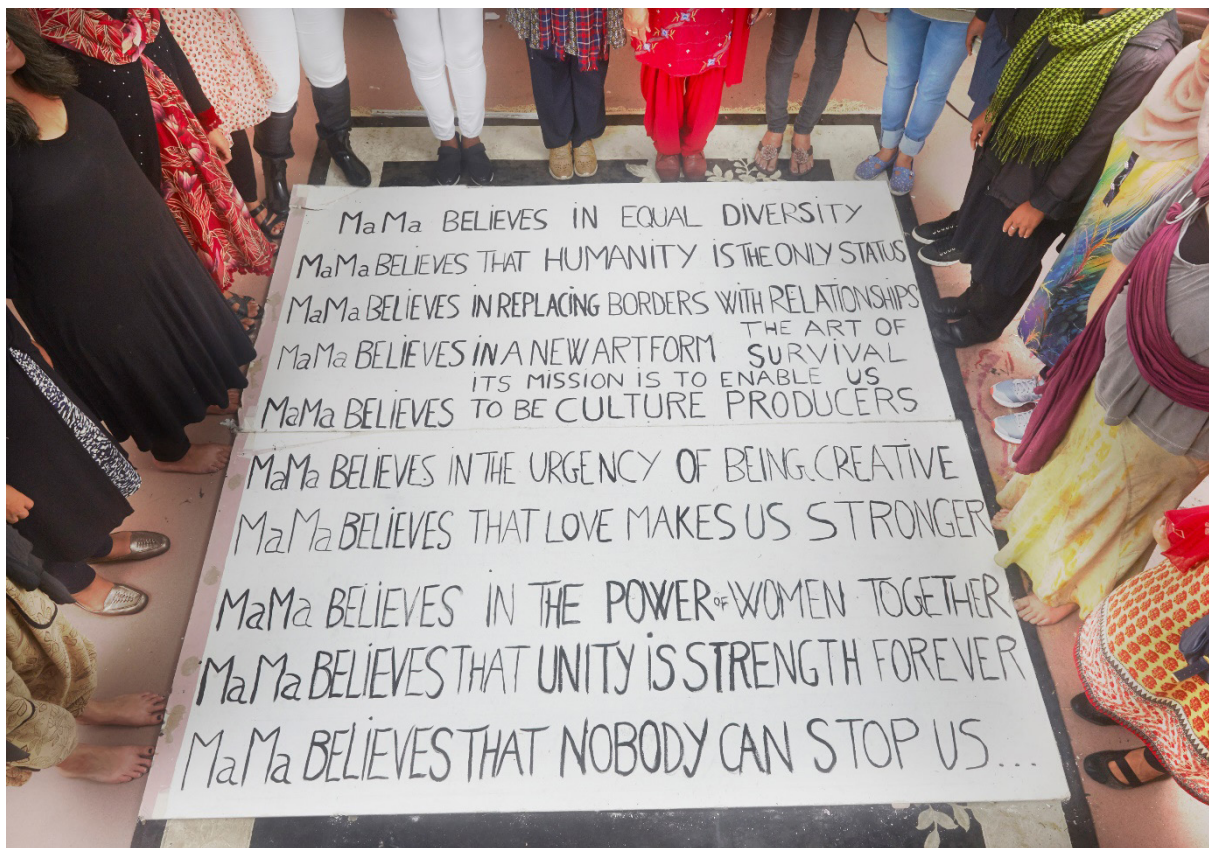 MaMa BELiEVES iN EQUAL DiVERSiTY
MaMa BELiEVES THAT HUMANiTY iS THE ONLY STATUS
MaMa BELiEVES iN REPLACiNG BORDERS WiTH RELATiONSHiPS
MaMa BELiEVES iN A NEW ART FORM THE ART OF SURViVAL
ITS MiSSiON iS TO ENABLE US
MaMa BELiEVES TO BE CULTURE PRODUCERS
MaMa BELiEVES iN THE URGENCY OF BEiNG CREATiVE
MaMa BELiEVES THAT LOVE MAKES US STRONGER
MaMa BELiEVES iN THE POWER OF WOMEN TOGETHER
MaMa BELiEVES THAT UNiTY iS STRENGTH FOREVER
MaMa BELiEVES THAT NOBODY CAN STOP US...